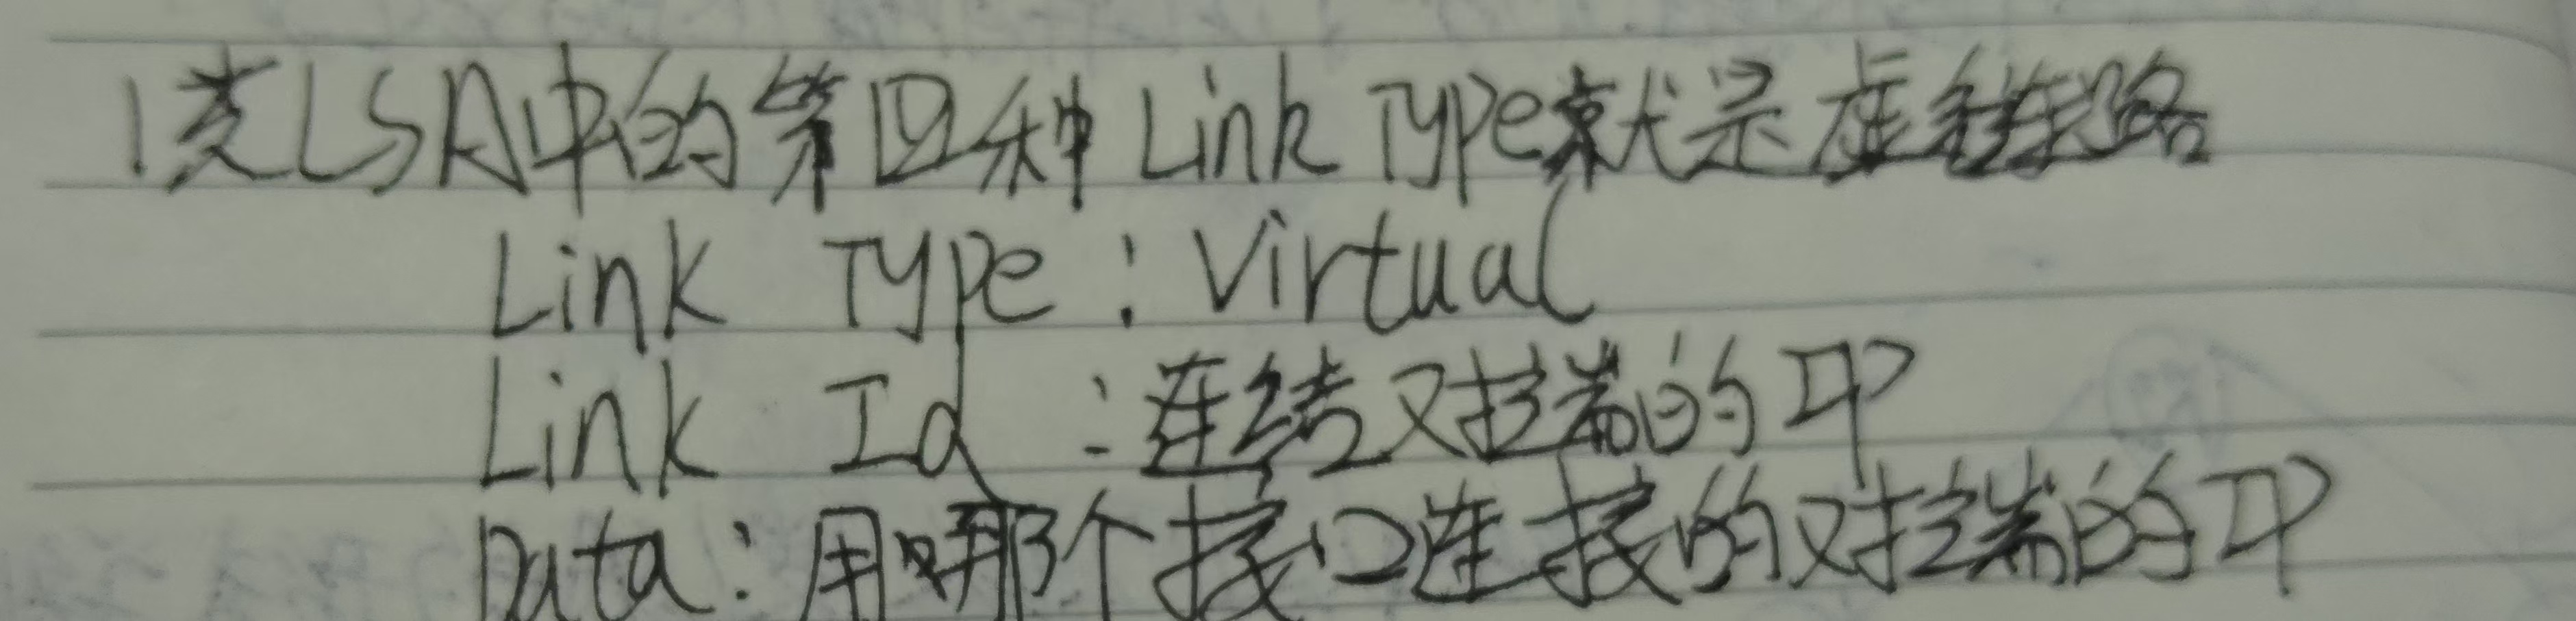 1类LSA中的第四种Link Type就是虚链路
Link Type：Virtual
Link Id：连结对端的IP
Data：用哪个接口连接的对端的IP